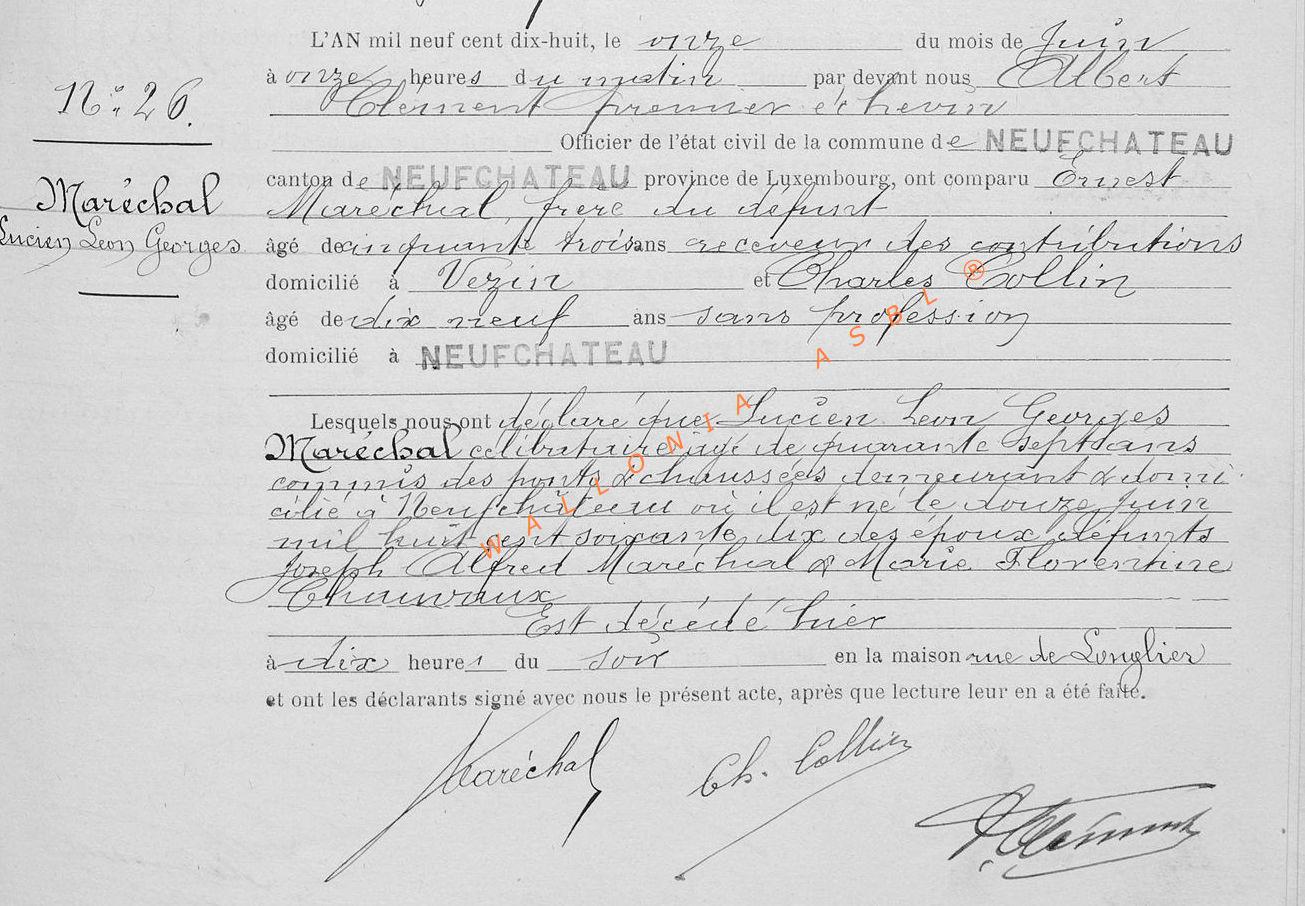 L'AN mil neuf cent dix-huit, le onze du mois de Juin
à onze heures du matin par devant nous Albert
Clément premier échevin
Officier de l'état civil de la commune de NEUFCHATEAU
canton de NEUFCHATEAU province de Luxembourg, ont comparu Ernest
Maréchal, frère du défunt
âgé de cinquante trois ans receveur des contributions
domicilié à Vezin et Charles Collin
âgé de dix neuf ans sans profession
domicilié à NEUFCHATEAU
Lesquels nous ont déclaré que Lucien Leon Georges
Maréchal célibataire âgé de quarante sept ans
commis des ponts & chaussées demeurant & domi
cilié à Neufchâteau où il est né le douze Juin
mil huit cent soixante dix des époux défunts
Joseph Alfred Maréchal & Marie Florentine
Chauvaux
Est décédé hier
à dix heures du soir en la maison rue de Longlier
et ont les déclarants signé avec nous le présent acte, après que lecture leur en a été faite.
Maréchal Ch. Collin
AClément
N° 26.
Maréchal
Lucien Leon Georges
WALLONIA ASBL ®